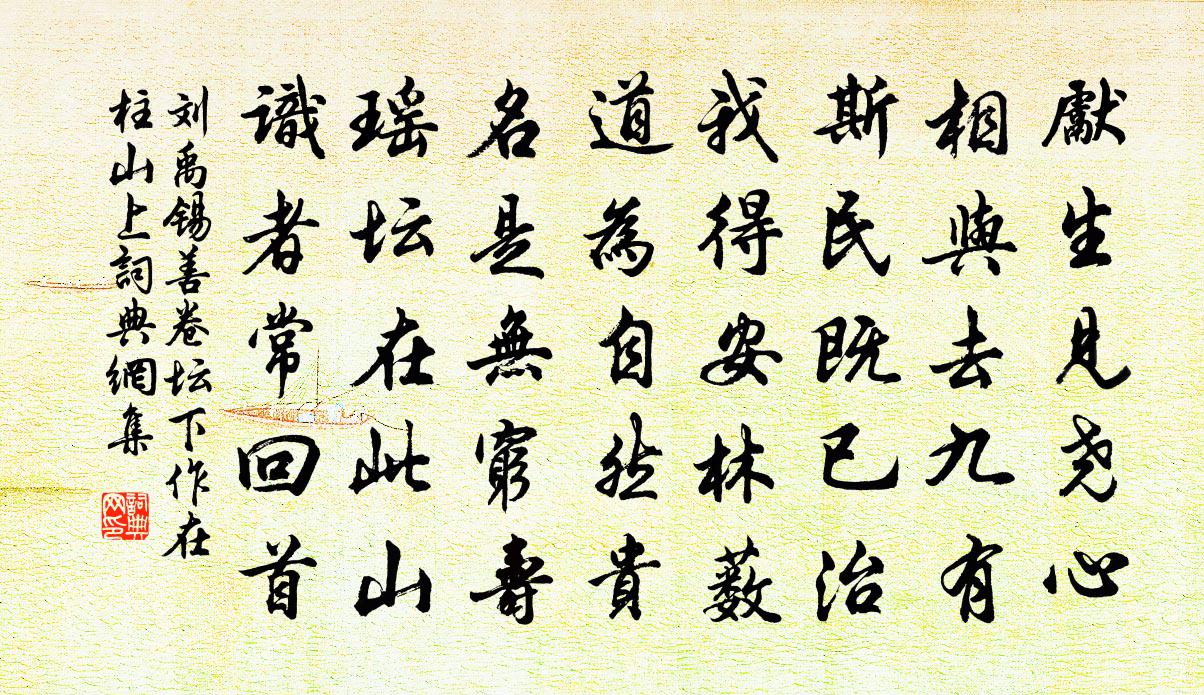 獻生見尧心
相與去九有
斯民既已治
我得安林藪
道為自然貴
名是無窮壽
瑶坛在此山
識者常回首
刘禹锡善卷坛下作在
柱山上詞典網集
詞典
网印